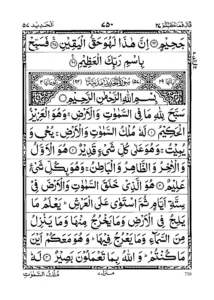 الحديد ٥٧ ٤٥٠ قال فما خطبكم ٢٧
جَحِيمٍ ۝ إِنَّ هٰذَا لَهُوَ حَقُّ الْيَقِينِ ۝ فَسَبِّحْ
بِاسْمِ رَبِّكَ الْعَظِيمِ ۝
بِسْمِ اللهِ الرَّحْمٰنِ الرَّحِيمِ
سَبَّحَ لِلّٰهِ مَا فِي السَّمٰوٰتِ وَالْأَرْضِ ۚ وَهُوَ الْعَزِيزُ
الْحَكِيمُ ۝ لَهُ مُلْكُ السَّمٰوٰتِ وَالْأَرْضِ ۚ يُحْيِي وَ
يُمِيتُ ۚ وَهُوَ عَلَىٰ كُلِّ شَيْءٍ قَدِيرٌ ۝ هُوَ الْأَوَّلُ
وَالْآخِرُ وَالظَّاهِرُ وَالْبَاطِنُ ۚ وَهُوَ بِكُلِّ شَيْءٍ
عَلِيمٌ ۝ هُوَ الَّذِي خَلَقَ السَّمٰوٰتِ وَالْأَرْضَ فِي
سِتَّةِ أَيَّامٍ ثُمَّ اسْتَوَىٰ عَلَى الْعَرْشِ ۚ يَعْلَمُ مَا
يَلِجُ فِي الْأَرْضِ وَمَا يَخْرُجُ مِنْهَا وَمَا يَنْزِلُ
مِنَ السَّمَاءِ وَمَا يَعْرُجُ فِيهَا ۚ وَهُوَ مَعَكُمْ أَيْنَ
مَا كُنْتُمْ ۚ وَاللهُ بِمَا تَعْمَلُونَ بَصِيرٌ ۝ لَهُ
مُلْكُ السَّمٰوٰتِ